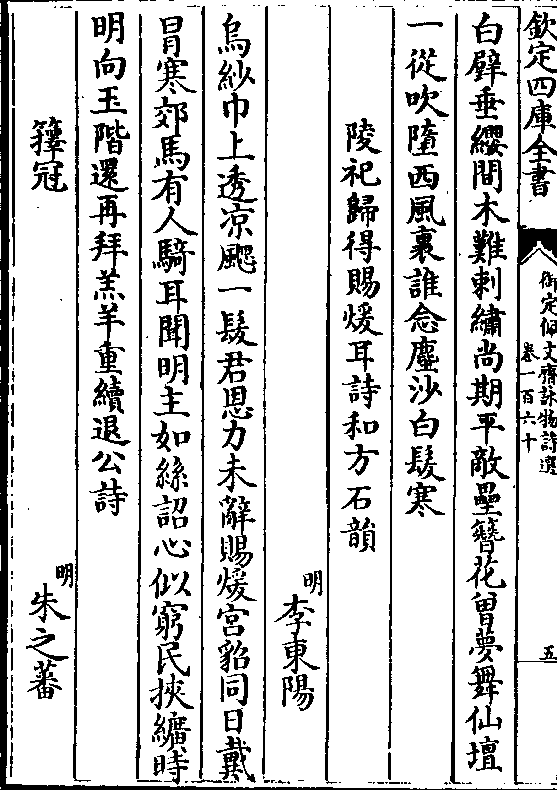 欽定四庫全書
御定佩文齋詠物詩選
卷一百六十
五
白璧垂纓間木難刺繡尚期平敵壘簪花曾夢舞仙壇
一從吹墮西風裏誰念塵沙白髮寒
陵祀歸得賜煖耳詩和方石韻
明李東陽
烏紗巾上透凉颸一髮君恩力未辭賜煖宫貂同日戴
冐寒郊馬有人騎耳聞明主如絲詔心似窮民挾纊時
明向玉階還再拜羔羊重續退公詩
籜冠
明朱之蕃